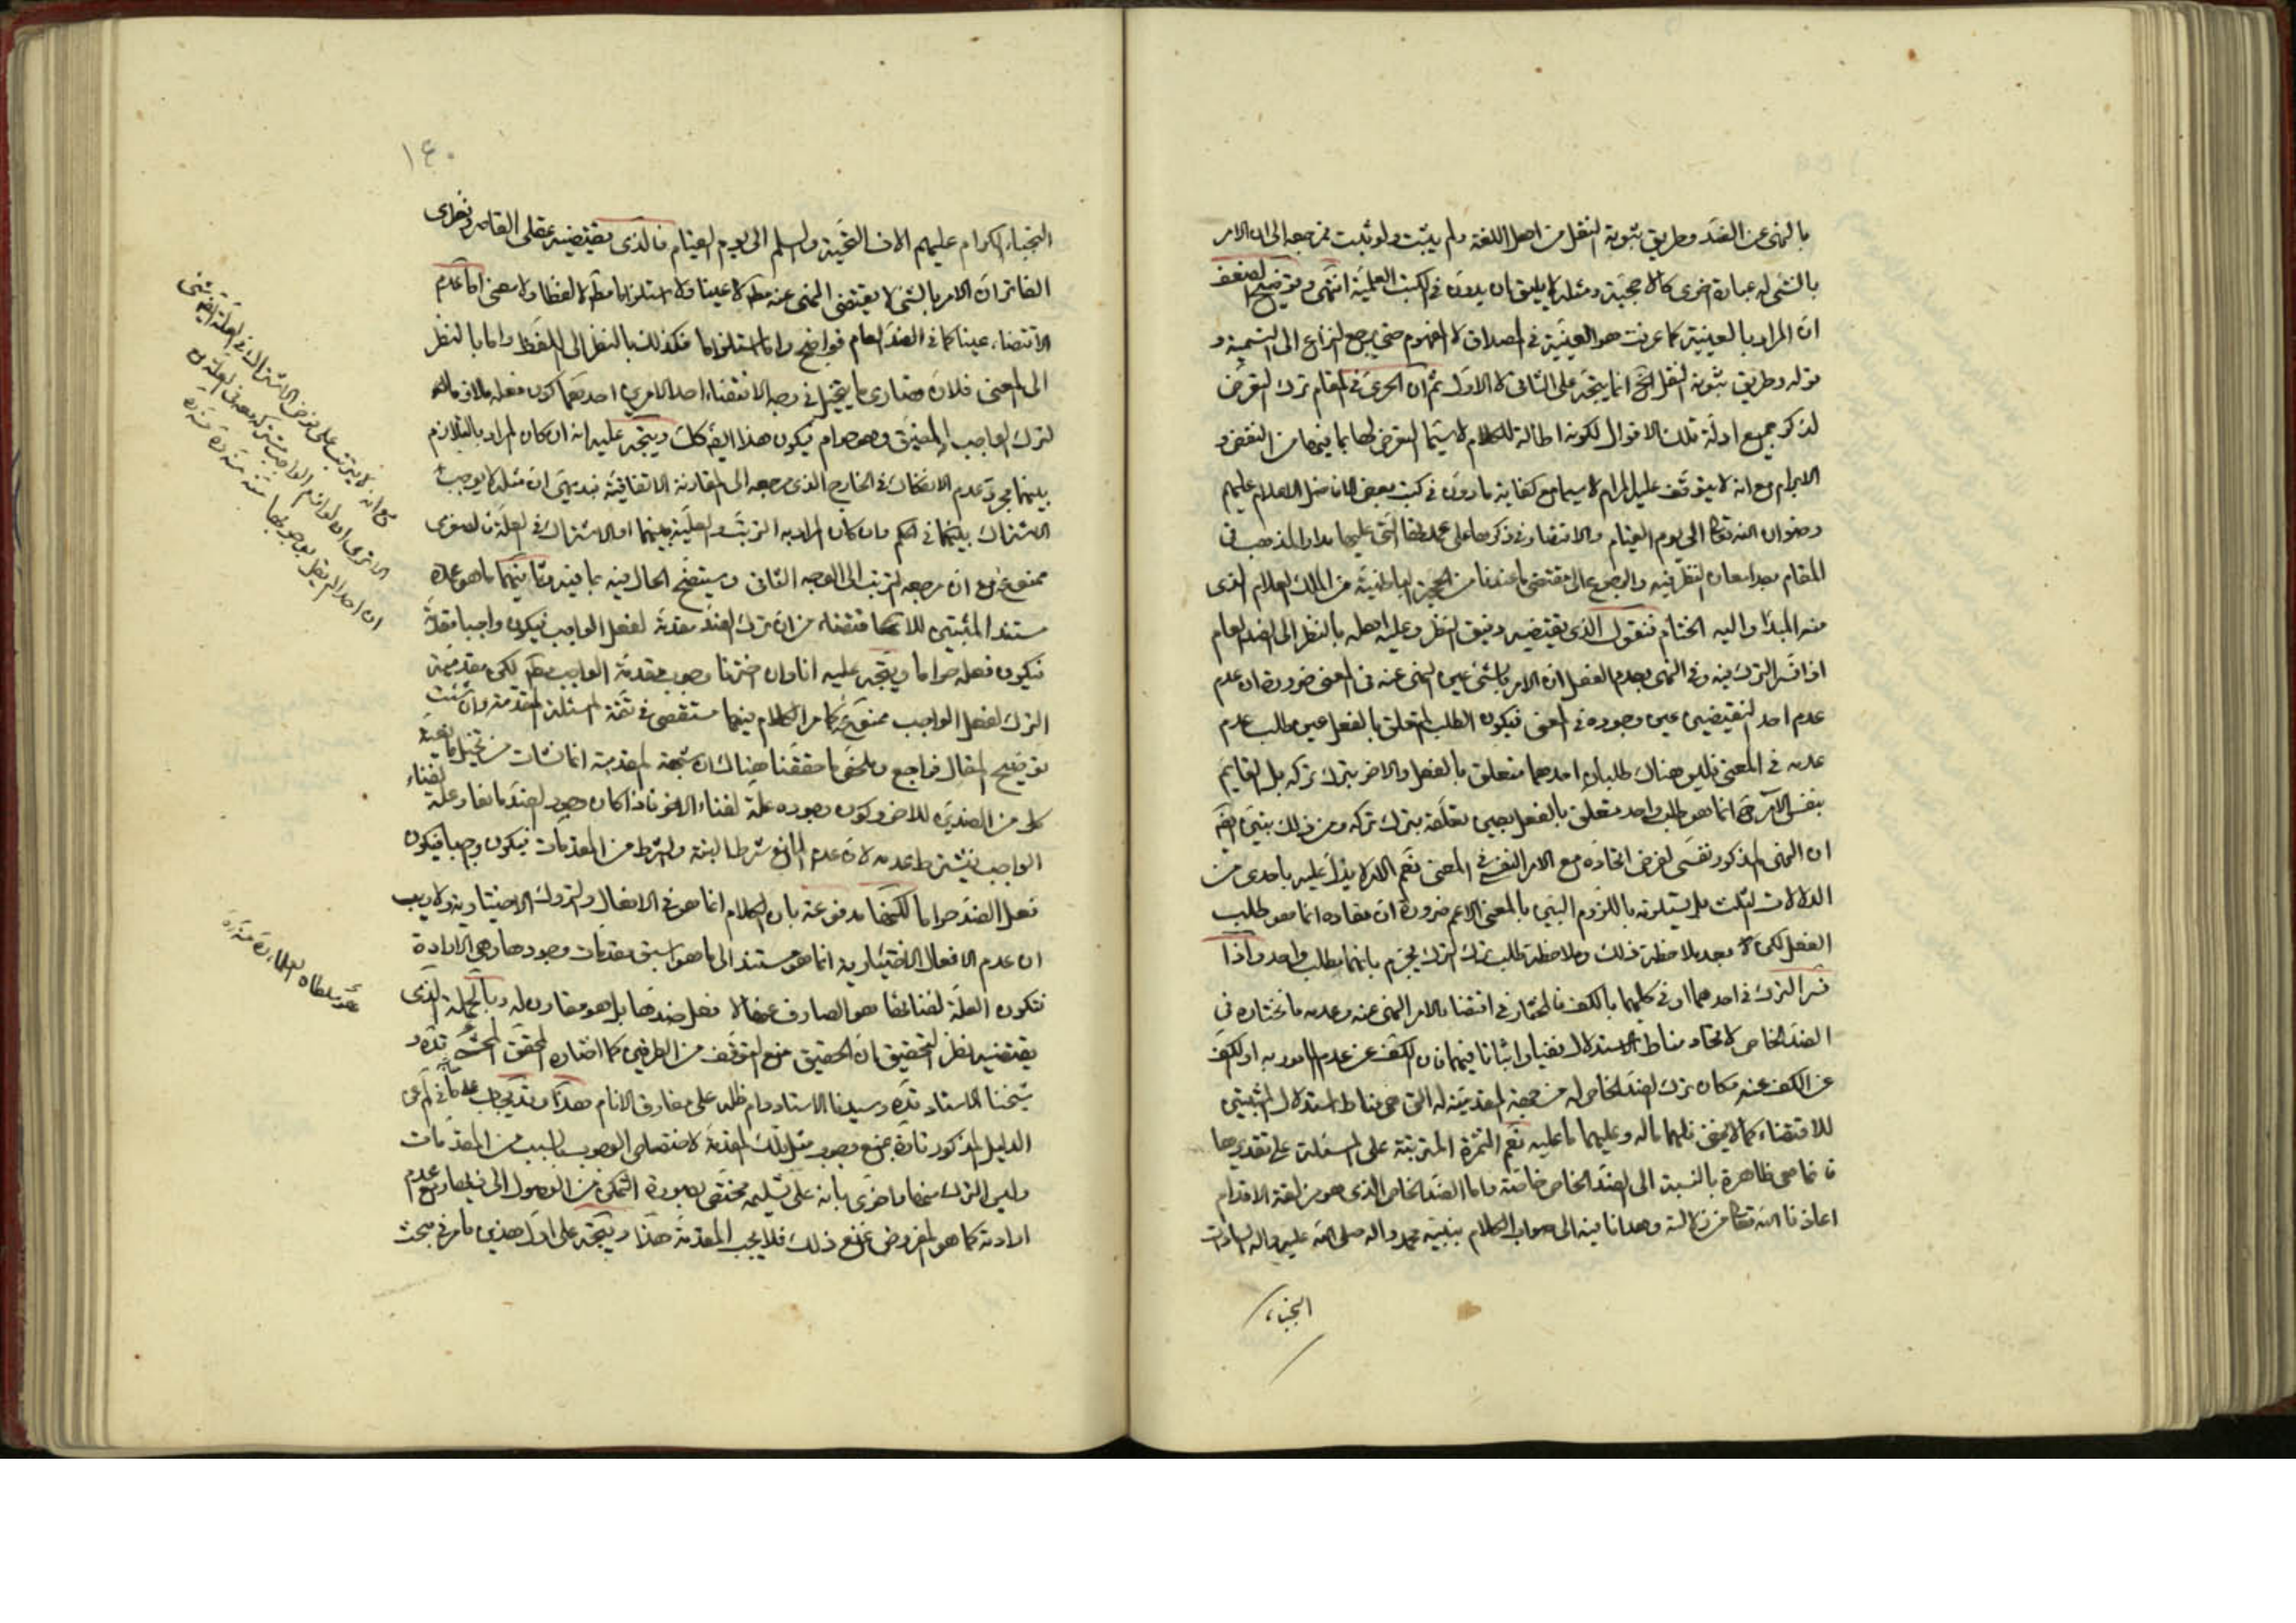 بالنهى عن الضد وطريق ثبوته النقل من اهل اللغة ولم يثبت ولو ثبت فمرجعه الى ان الامر
بالشئ له عبارة اخرى كالاحجية ومثله لا يليق ان يدون فى الكتب العلمية انتهى وتوضيح الضعف
ان المراد بالعينية كما عرفت هو العينية فى المصداق لا المفهوم حتى يرجع النزاع الى التسمية و
قوله وطريق ثبوته النقل الخ انما يتجه على الثانى لا الاول ثم ان الحرى فى المقام ترك التعرض
لذكر جميع ادلة تلك الاقوال لكونه اطالة للكلام لا سيما التعرض لها بما فيها من النقض و
الابرام مع انه لا يتوقف عليه المرام لا سيما مع كفاية ما دون فى كتب بعض الافاضل الاعلام عليهم
رضوان الله تعالى الى يوم القيام والاقتصار فى ذكرها على عمدتها التى عليها مدار المذهب فى
المقام بعد امعان النظر فيه والرجوع الى مقتضى ما عندنا من الحجة الباطنية من الملك العلام الذى
منه المبدأ واليه الختام فنقول الذى يقتضيه دقيق النظر وعليه اهله بالنظر الى الضد العام
اذا فسر الترك فيه وفى النهى بعدم الفعل ان الامر بالشئ عين النهى عنه فى المعنى ضرورة ان عدم
عدم احد النقيضين عين وجوده فى المعنى فيكون الطلب المتعلق بالفعل عين طلب عدم
عدمه فى المعنى فليس هناك طلبان احدهما متعلق بالفعل والاخر بترك تركه بل القايم
بنفس الآمر ح انما هو طلب واحد متعلق بالفعل بعين تعلقه بترك تركه ومن ذلك يتبين ايضا
ان النهى المذكور نفسى لفرض اتحاده مع الامر النفسى فى المعنى نعم الامر لا يدل عليه باحدى من
الدلالات الثلث بل يستلزمه باللزوم البين بالمعنى الاعم ضرورة ان مفاده انما هو طلب
الفعل لكن بعد ملاحظة ذلك وملاحظة طلب ترك الترك يجزم بانهما طلب واحد واذا
فسر الترك فى احدهما او فى كليهما بالكف فالمختار فى اقتضاء الامر النهى عنه وعدمه ما نختاره فى
الضد الخاص لاتحاد مناط الاستدلال نفيا واثباتا فيهما فان الكف عن عدم المامور به او الكف
عن الكف عنه مكان ترك الضد الخاص له من جهة المقدمية له التى هى مناط استدلال المثبتين
للاقتضاء كما لا يخفى فلهما ماله وعليهما ما عليه نعم الثمرة المترتبة على المسئلة على تقديرها
فانما هى ظاهرة بالنسبة الى الضد الخاص خاصة واما الضد الخاص الذى هو مزلقة الاقدام
اعاذنا الله تعالى من زلاته وهدانا فيه الى صواب الكلام بنبيه محمد واله صلى الله عليه واله السادات
النجباء
١٤٠
النجباء الكرام عليهم الاف التحية والسلم الى يوم القيام فالذى يقتضيه عقلى القاصر ونظرى
الفاتر ان الامر بالشئ لا يقتضى النهى عنه مط لا عينا ولا استلزاما مط لا لفظا ولا معنى اما عدم
الاقتضاء عينا كما فى الضد العام فواضح واما استلزاما فكذلك بالنظر الى اللفظ واما بالنظر
الى المعنى فلان قصارى ما يتخيل فى وجه الاقتضاء احد الامرين احدهما كون فعله ملازما
لترك الواجب المضيق وهو حرام فيكون هذا ايضا كك ويتجه عليه انه ان كان المراد بالتلازم
بينهما مجرد عدم الانفكاك فى الخارج الذى مرجعه الى المقارنة الاتفاقية فبديهى ان مثله لا يوجب
الاشتراك بينهما فى الحكم وان كان المراد به الترتب والعلية بينهما او الاشتراك فى العلة فالصغرى
ممنوعة مع ان مرجعه الترتب الى الوجه الثانى وسيتضح الحال فيه بما فيه وثانيهما ما هو عمدة
مستند المثبتين للاقتضاء من ان ترك الضد مقدمة لفعل الواجب فيكون واجبا مقدمة
فيكون فعله حراما ويتجه عليه انا وان اخترنا وجوب مقدمة الواجب مط لكن مقدمية
الترك لفعل الواجب ممنوعة كما مر الكلام فيها مستقصى فى تتمة المسئلة المتقدمة وان شئت
توضيح المقال فراجع وملخص ما حققنا هناك ان شبهة المقدمية انما نشات من تخيل مانعية
كل من الضدين للاخر وكون وجوده علة لفناء الاخر فاذا كان وجود الضد مانعا وعلة لفناء
الواجب فيشترط عدمه لان عدم المانع شرط البتة والشرط من المقدمات فيكون واجبا فيكون
فعل الضد حراما لكنها مدفوعة بان الكلام انما هو فى الافعال والتروك الاختيارية ولا ريب
ان عدم الافعال الاختيارية انما هو مستند الى ما هو اسبق مقدمات وجودها وهى الارادة
فتكون العلة لفنائها هو الصارف عنها لا فعل ضدها بل هو مقارن له وبالجملة الذى
يقتضيه نظر التحقيق بل الحقيق منع التوقف من الطرفين كما اختاره المحقق المحشى قده و
شيخنا الاستاد قده وسيدنا الاستاد دام ظله على مفارق الانام هذا وقد يجاب عن
الدليل المذكور تارة بمنع وجوب مثل تلك المقدمة لاختصاص الوجوب بالسبب من المقدمات
وليس الترك منها واخرى بانه على تسليمه مختص بصورة التمكن من الوصول الى ذيها ومع عدم
ارادته كما هو المفروض يمتنع ذلك فلا يجب المقدمة هذا ويتجه على اول هذين ما مر فى مبحث
مع انه لا يترتب على فرض الاشتراك فى العلة ايضا شئ
الا ترى ان لوازم الواجب مشتركة معه فى العلة مع
ان احدا لم يقل بوجوبها منه
هو سلطان العلماء ره منه ره